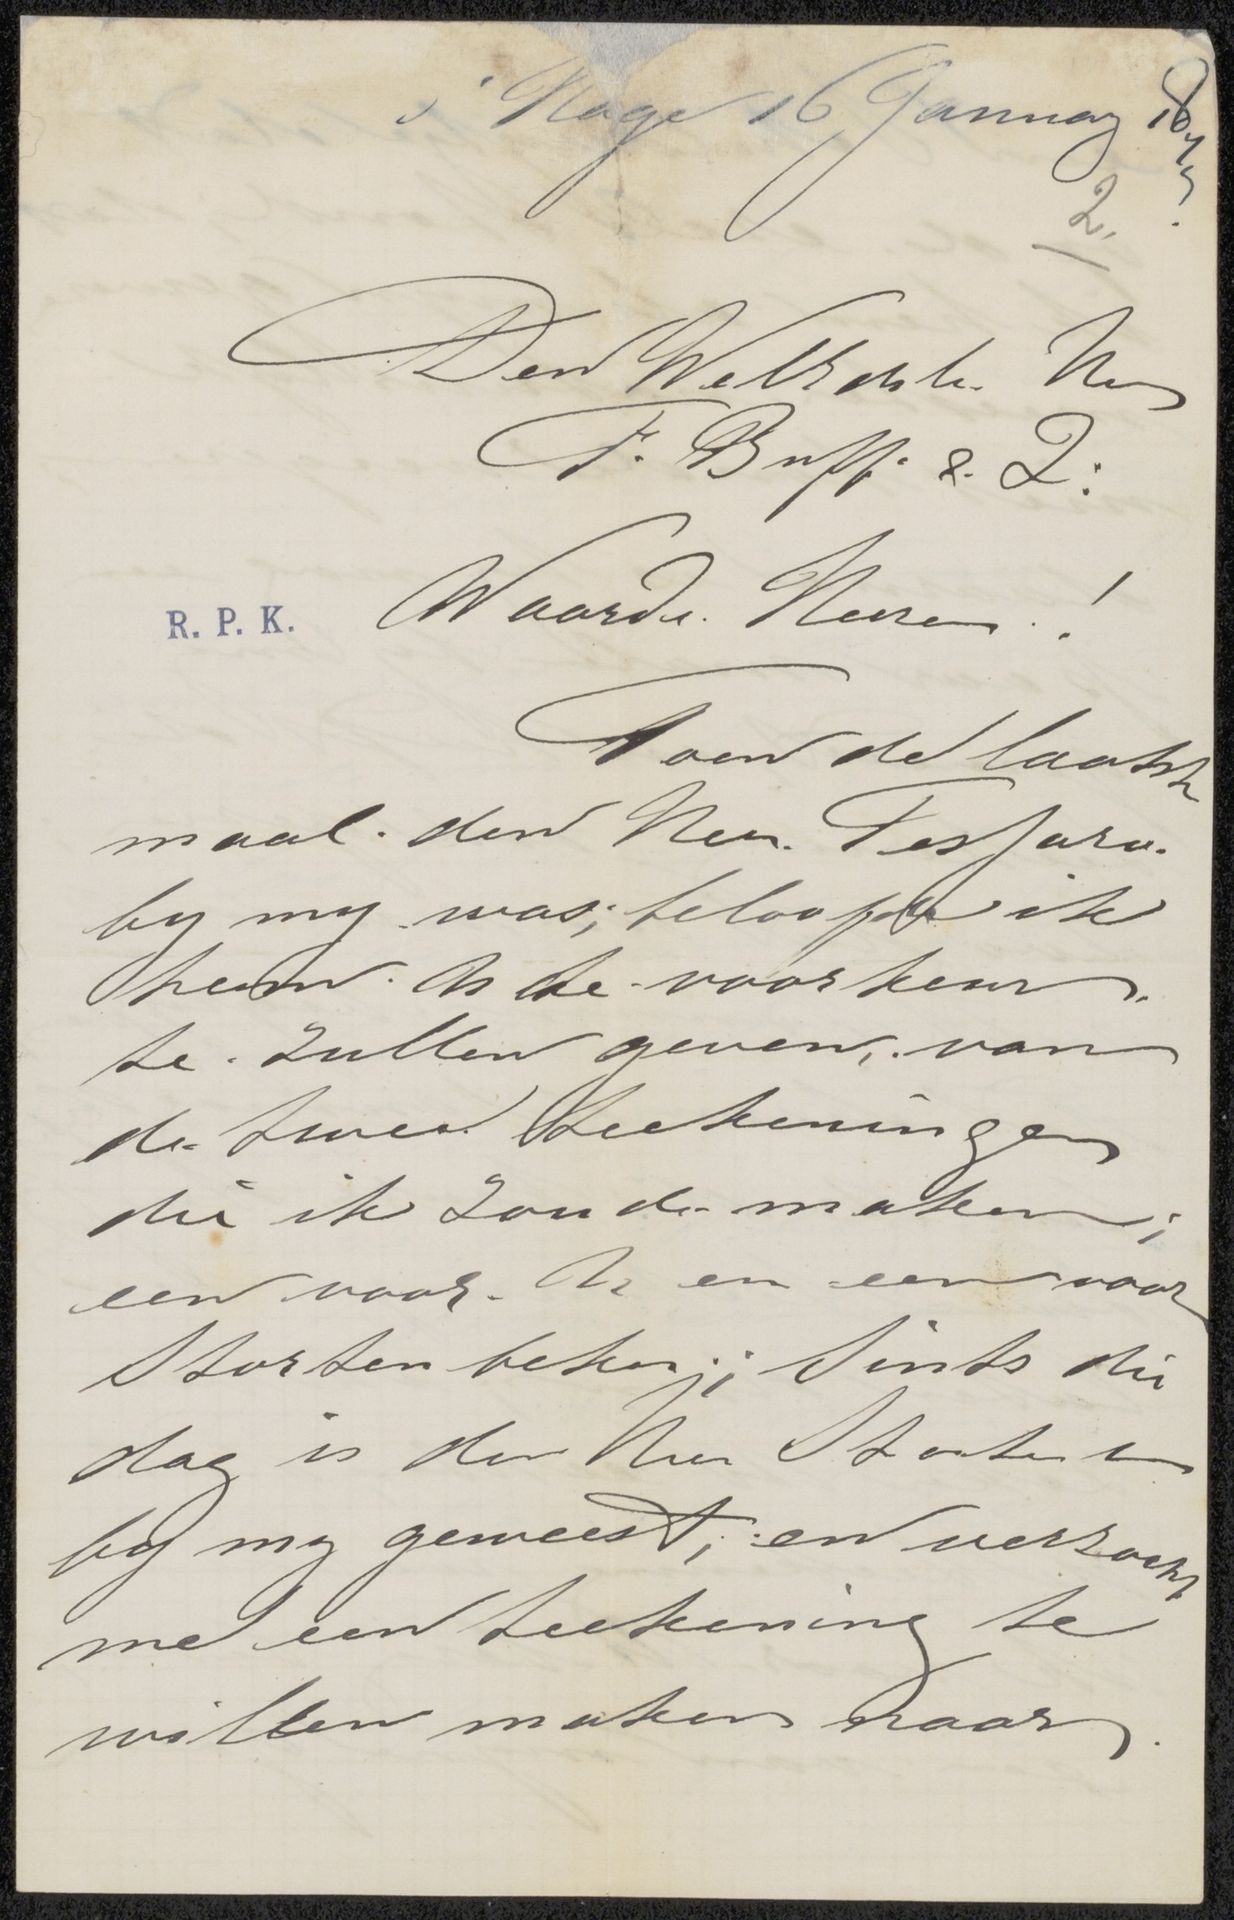 s' Hage 16 January 1877.
2.
Den WelEdele Heer
F. Buffa & Z:
R. P. K.
Waarde Heeren!
Toen de laatste
maal den Heer Tesfaro.
by my was; beloofde ik
hem U de voorkeur.
te zullen geven, van
de twee teekeningen
die ik zoude maken;
een voor U en een voor
Stortenbeker; sints die
dag is den Heer Stortenb
by my geweest; en verzocht
me een teekening te
willen maken naar.